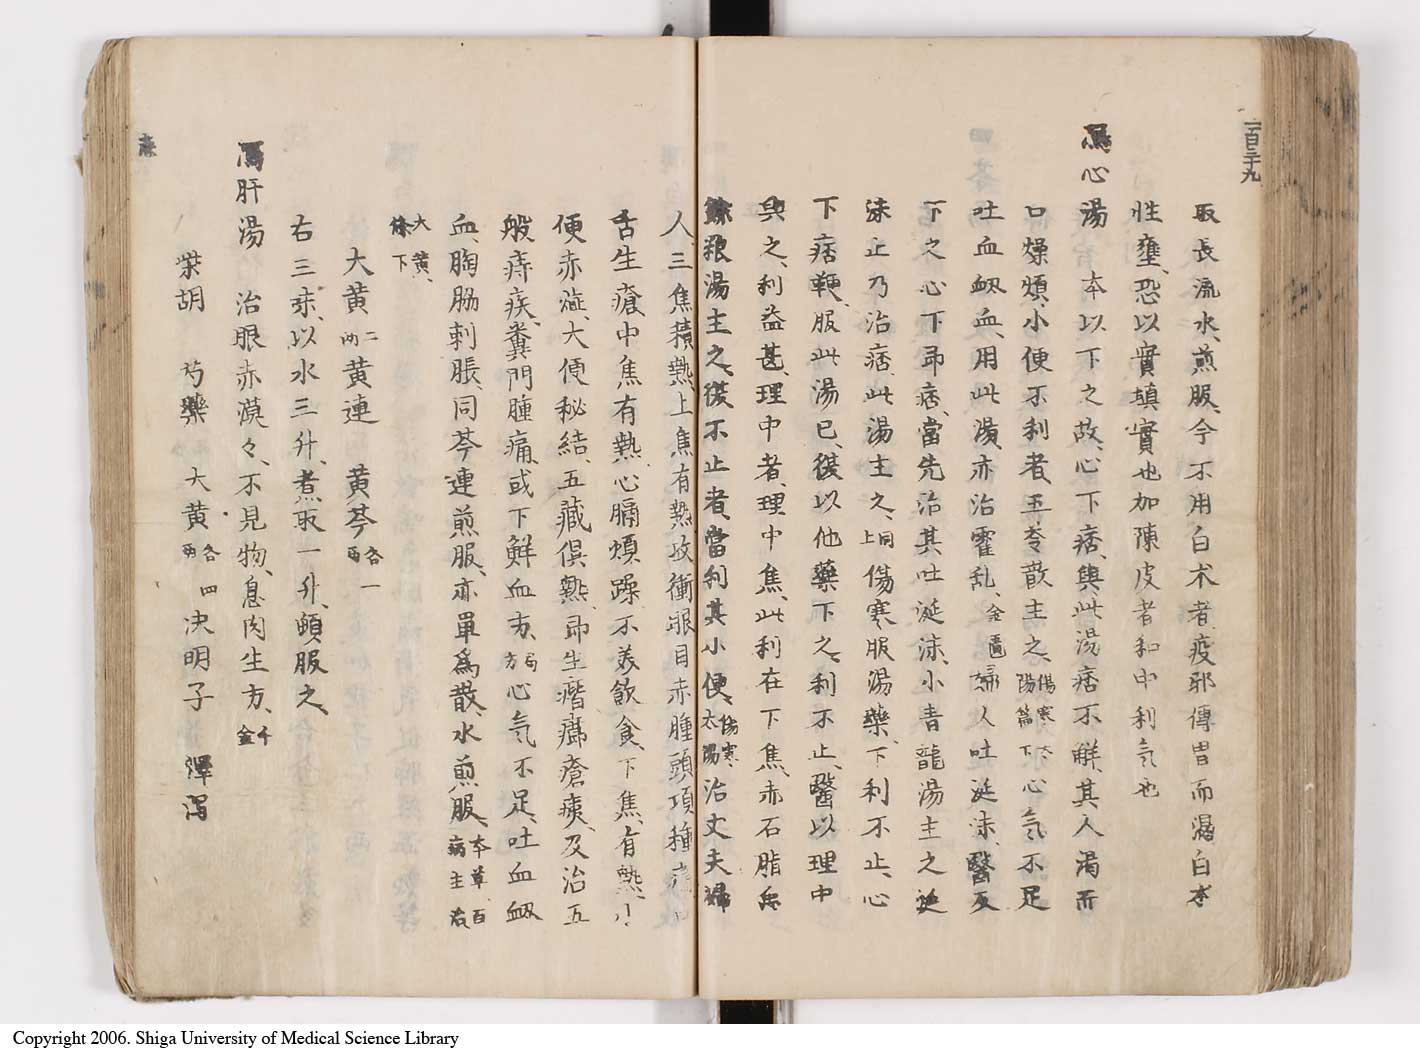 一百三十九
取長流水、煎服、今不用白朮者、疫邪傳胃而濕白朮
性壅、恐以實填實也加陳皮者和中利氣也
瀉心湯 本以下之故、心下痞、與此湯痞不解、其人渴而
口燥煩、小便不利者、五苓散主之、傷寒太陽篇下心氣不足
吐血衂血、用此湯、亦治霍乱、金匱婦人吐涎沫、醫反
下之心下即痞、當先治其吐涎沫、小青龍湯主之涎
沫止乃治痞此湯主之、同上傷寒服湯藥、下利不止、心
下痞鞕、服此湯已、後以他藥下之、利不止、醫以理中
與之、利益甚、理中者、理中焦、此利在下焦、赤石脂禹
餘粮湯主之、復不止者、當利其小便、傷寒太陽治丈夫婦
人、三焦積熱、上焦有熱攻衝眼目赤腫頭項種痛口
舌生瘡、中焦有熱、心膈煩躁不美飲食、下焦有熱、小
便赤澁、大便秘結、五藏俱熱、即生㿈癤瘡痍、及治五
般痔疾、糞門腫痛、或下鮮血方、局方心氣不足、吐血衂
血、胸脇刺脹、同芩連煎服、亦單為散、水煎服、本草百病主治
大黄、條下
大黄二両黄連 黄芩各一両
右三味、以水三升、煮取一升、頓服之、
瀉肝湯 治眼赤漠々、不見物、息肉生方、千金
柴胡 芍藥 大黄各四両決明子 澤瀉